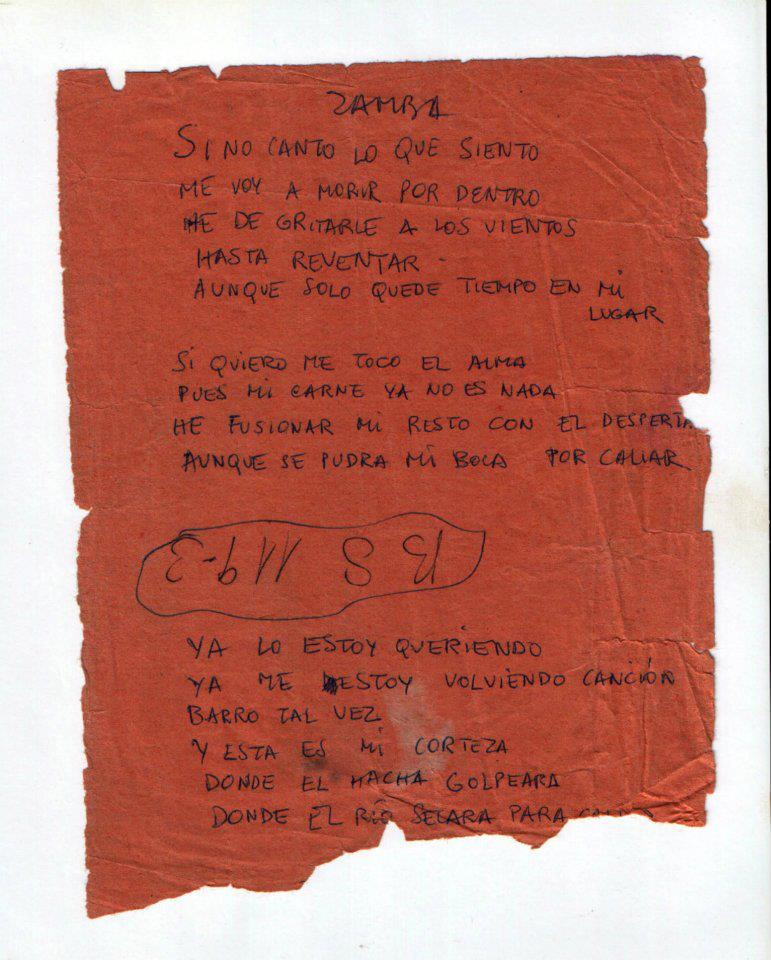 ZAMBA
SI NO CANTO LO QUE SIENTO
ME VOY A MORIR POR DENTRO
HE DE GRITARLE A LOS VIENTOS
HASTA REVENTAR -
AUNQUE SOLO QUEDE TIEMPO EN MI
LUGAR
SI QUIERO ME TOCO EL ALMA
PUES MI CARNE YA NO ES NADA
HE FUSIONAR MI RESTO CON EL DESPERTA
AUNQUE SE PUDRA MI BOCA POR CALLAR
BS 119-3
YA LO ESTOY QUERIENDO
YA ME ESTOY VOLVIENDO CANCIÓN
BARRO TAL VEZ
Y ESTA ES MI CORTEZA
DONDE EL HACHA GOLPEARA
DONDE EL RÍO SECARA PARA